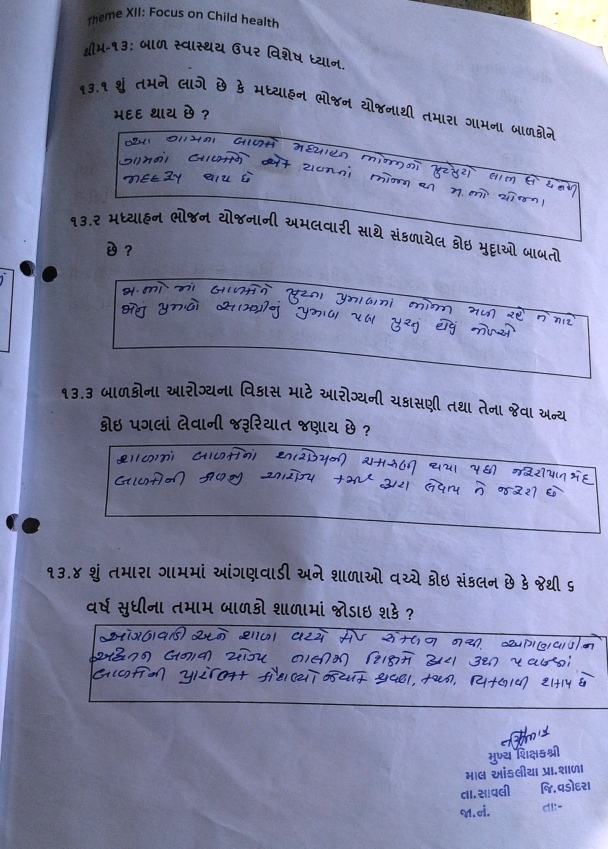 Theme XII: Focus on Child health
થીમ-૧૩: બાળ સ્વાસ્થય ઉપર વિશેષ ધ્યાન.
૧૩.૧ શું તમને લાગે છે કે મધ્યાહન ભોજન યોજનાથી તમારા ગામના બાળકોને
મદદ થાય છે ?
આ ગામના બાળકો મધ્યાહન ભોજનનો પુરેપુરો લાભ લે છે
ગામનાં બાળકોને ભોજન મ.ભો યોજના
મદદરૂપ થાય છે
૧૩.૨ મધ્યાહન ભોજન યોજનાની અમલવારી સાથે સંકળાયેલ કોઇ મુદ્દાઓ બાબતો
છે ?
મ.ભો માં બાળકોને પુરતા પ્રમાણમાં ભોજન મળી રહે તે માટે
સામગ્રીનું પ્રમાણ પણ પુરતુ હોવું જોઇએ
૧૩.૩ બાળકોના આરોગ્યના વિકાસ માટે આરોગ્યની ચકાસણી તથા તેના જેવા અન્ય
કોઇ પગલાં લેવાની જરૂરિયાત જણાય છે ?
શાળામાં બાળકોના આરોગ્યની ચકાસણી થયા પછી જરૂરીયાત મંદ
બાળકોની આરોગ્ય દ્વારા લેવાય તે જરૂરી છે
૧૩.૪ શું તમારા ગામમાં આંગણવાડી અને શાળાઓ વચ્ચે કોઇ સંકલન છે કે જેથી ૬
વર્ષ સુધીના તમામ બાળકો શાળામાં જોડાઇ શકે ?
આંગણવાડી અને શાળા વચ્ચે કોઇ સંકલન નથી. આંગણવાડીને
બનાવી યોગ્ય તાલીમી શિક્ષકો દ્વારા ૩થી ૫ વર્ષનાં
બાળકોની પ્રારંભિક કૌશલ્યો શ્રવણ, કથન, શકાય છે
મુખ્ય શિક્ષકશ્રી
માલ આંકલીયા પ્રા.શાળા
તા.સાવલી જિ.વડોદરા
જા.નં. તા:-